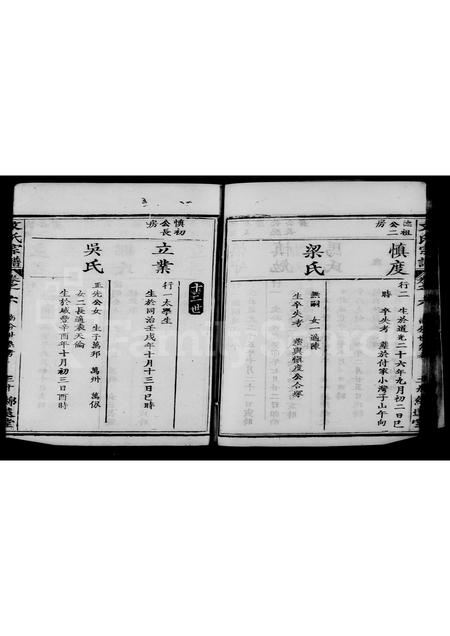 文氏宗譜
公二
房
慎度
行二 生於道光二十六年九月初二日巳
時 卒失考 葬於付家小灣子山午向
梁氏
無嗣 女一適陳
生卒失考 葬與慎度公合塚
十二世
慎初
公長
房
立業
行一太學生
生於同治壬戌年十月十三日巳時
吳氏
正先公女 生子萬邦 萬州 萬佩
女二長適袁天倫
生於咸豐辛酉年十月初三日酉時
文氏宗譜